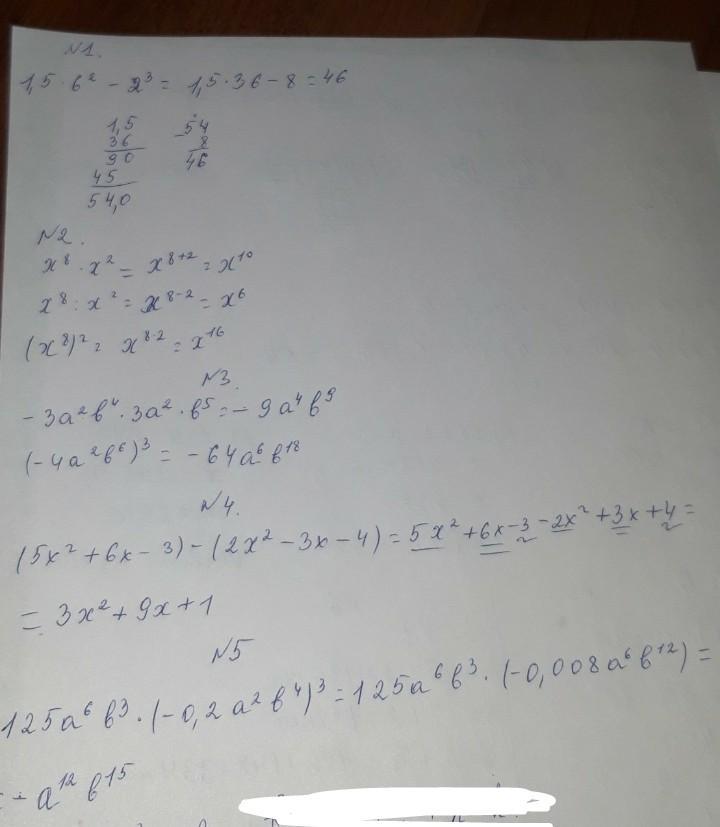 №1.
1,5 · 6² - 2³ = 1,5 · 36 - 8 = 46
1,5
36
90
45
54,0
-54
8
46
№2.
x⁸ · x² = x⁸⁺² = x¹⁰
x⁸ : x² = x⁸⁻² = x⁶
(x⁸)² = x⁸·² = x¹⁶
№3.
-3a²b⁴ · 3a² · b⁵ = -9a⁴b⁹
(-4a²b⁶)³ = -64a⁶b¹⁸
№4.
(5x² + 6x - 3) - (2x² - 3x - 4) = 5x² + 6x - 3 - 2x² + 3x + 4 =
= 3x² + 9x + 1
№5
125a⁶b³ · (-0,2a²b⁴)³ = 125a⁶b³ · (-0,008a⁶b¹²) =
= - a¹²b¹⁵